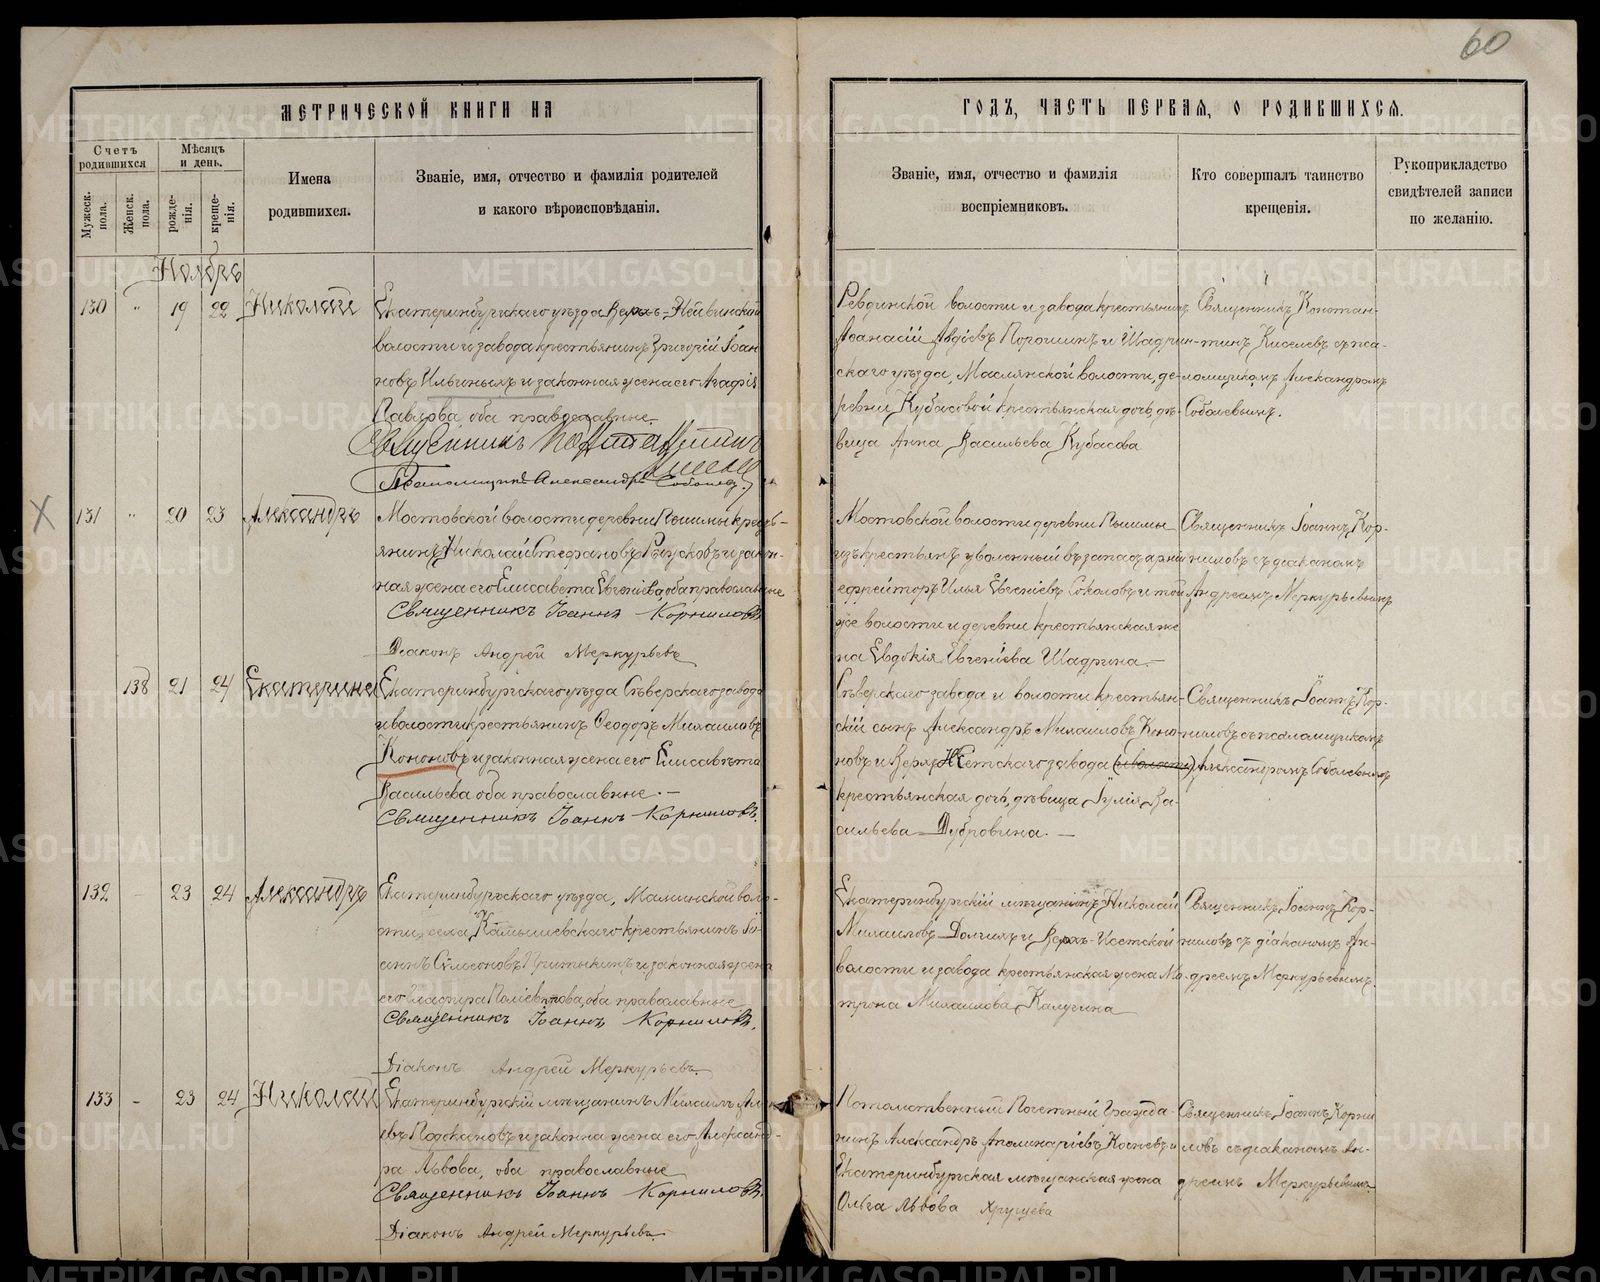 60
МЕТРИЧЕСКОЙ КНИГИ НА
ГОДЪ, ЧАСТЬ ПЕРВАЯ, О РОДИВШИХСЯ.
Счетъ родившихся
Мѣсяцъ и день.
Мужеск. пола.
Женск. пола.
рожде-нія.
креще-нія.
Имена
родившихся.
Званіе, имя, отчество и фамилія родителей
и какого вѣроисповѣданія.
Званіе, имя, отчество и фамилія
воспріемниковъ.
Кто совершалъ таинство
крещенія.
Рукоприкладство
свидѣтелей записи
по желанію.
Ноябрь
130 " 19 22 Николай
Екатеринбургскаго уѣзда Верхъ-Нейвинской
волости и завода крестьянинъ Григорій Іоан
новъ Ильиныхъ и законная жена его Агафія
Павлова, оба православные.
Священникъ Константинъ
Псаломщикъ Александръ Соболевъ.
Ревдинской волости и завода крестьянинъ
Аѳанасій Авдіевъ Порошинъ и Шадрин-
скаго уѣзда, Маслянской волости, де-
ревни Кубасовой крестьянская дочь, дѣ-
вица Анна Васильева Кубасова
Священникъ Констан-
тинъ Киселевъ съ пса-
ломщикомъ Александромъ
Соболевымъ.
131 " 20 23 Александръ
Мостовской волости деревни Пышмы кресть-
янинъ Николай Стефановъ и закон-
ная жена его Елисавета Евгеніева, оба православные
Священникъ Іоаннъ Корниловъ
Діаконъ Андрей Меркурьевъ
Мостовской волости деревни Пышмы
изъ крестьянъ уволенный въ запасъ арміи
ефрейторъ Илья Евгеніевъ Соколовъ и той
же волости и деревни крестьянская же
на Евдокія Евгеніева Шадрина.—
Священникъ Іоаннъ Кор-
ниловъ съ діакономъ
Андреемъ Меркурьевымъ
138 21 24 Екатерина
Екатеринбургскаго уѣзда Сѣверскаго завода
и волости крестьянинъ Ѳеодоръ Михаиловъ
Кононовъ и законная жена его Елисавета
Васильева оба православные.—
Священникъ Іоаннъ Корниловъ.
Сѣверскаго завода и волости крестьян-
скій сынъ Александръ Михаиловъ Коно
новъ и Верхъ-Исетскаго завода (и волости)
крестьянская дочь, дѣвица Іулія Ва-
сильева Дубровина.—
Священникъ Іоаннъ Кор-
ниловъ съ псаломщикомъ
Александромъ Соболевымъ
132 - 23 24 Александръ
Екатеринбургскаго уѣзда, Маминской воло-
сти, села Камышевскаго крестьянинъ Іо-
аннъ Сѵмеоновъ и законная жена
его Глафира оба православные
Священникъ Іоаннъ Корниловъ.
Діаконъ Андрей Меркурьевъ.
Екатеринбургскій мѣщанинъ Николай
Михаиловъ Долгихъ и Верхъ-Исетской
волости и завода крестьянская жена Ма
трона Михаилова Калугина
Священникъ Іоаннъ Кор-
ниловъ съ діакономъ Ан-
дреемъ Меркурьевымъ.
133 - 23 24 Николай
Екатеринбургскій мѣщанинъ Михаилъ
и законна жена его Александ-
ра Львова, оба православные
Священникъ Іоаннъ Корниловъ.
Діаконъ Андрей Меркурьевъ.
Потомственный Почетный Гражда-
нинъ Александръ Аполинаріевъ и
Екатеринбургская мѣщанская жена
Ольга Львова Хрущева
Священникъ Іоаннъ Корни
ловъ съ діакономъ Ан-
дреемъ Меркурьевымъ.
METRIKI.GASO-URAL.RU